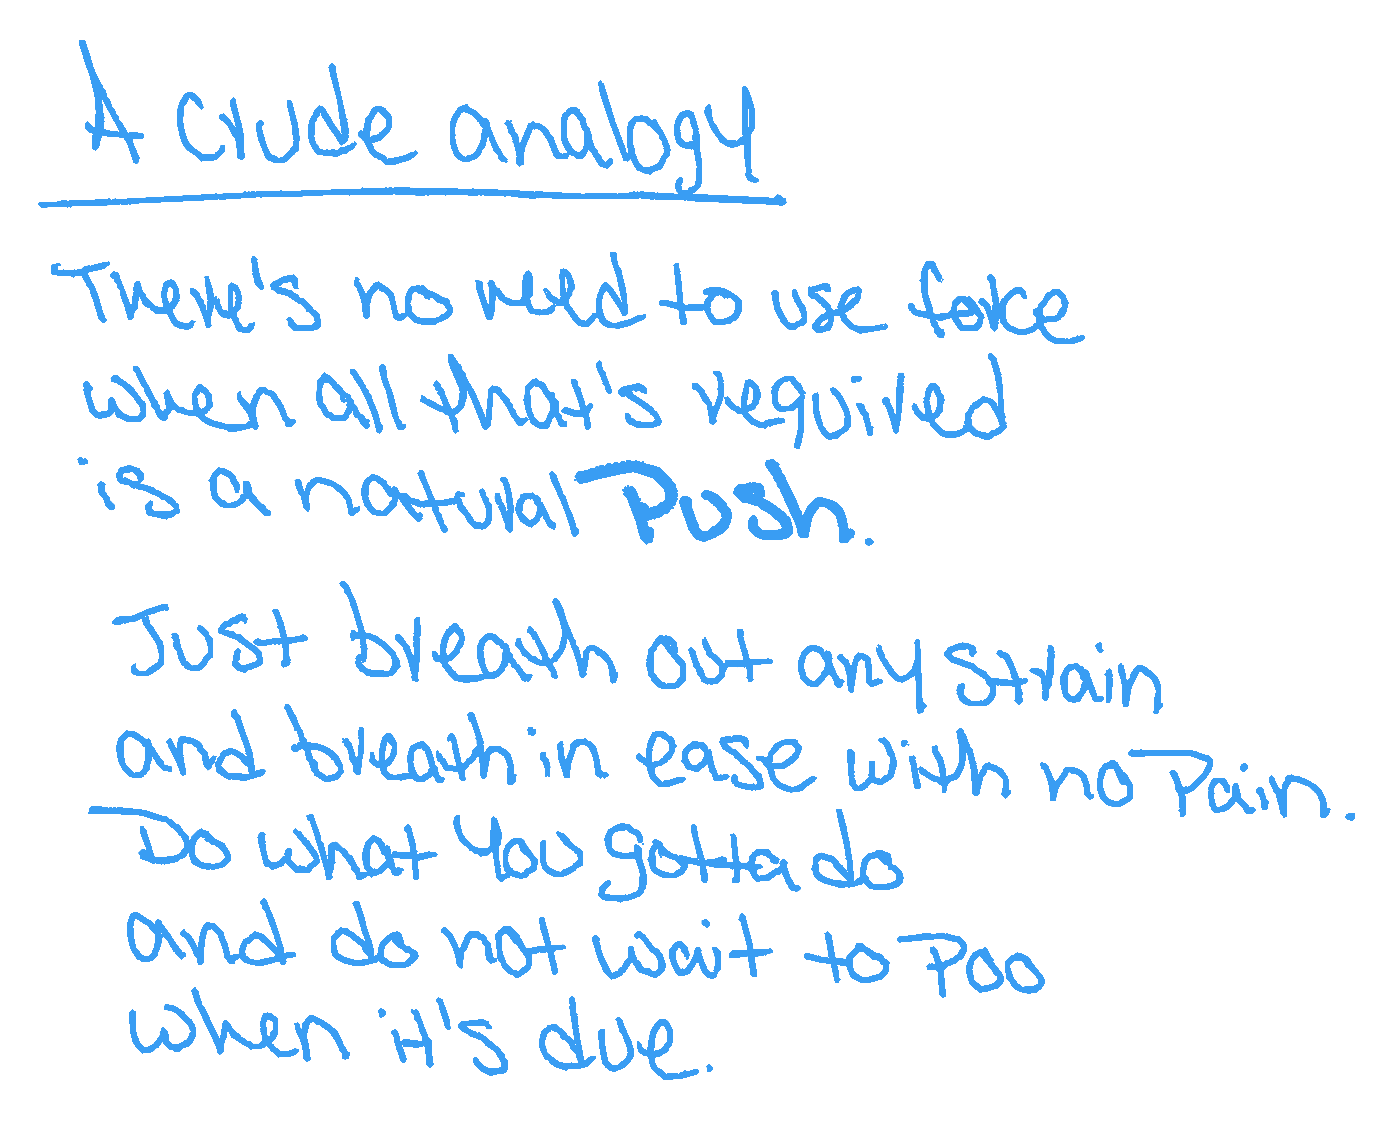 A crude analogy
There's no need to use force
when all that's required
is a natural Push.
Just breath out any strain
and breath in ease with no Pain.
Do what you gotta do
and do not wait to Poo
when it's due.